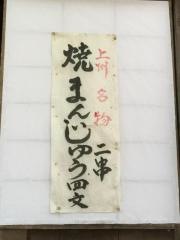 上州名物
焼まんじゅう四文
二串